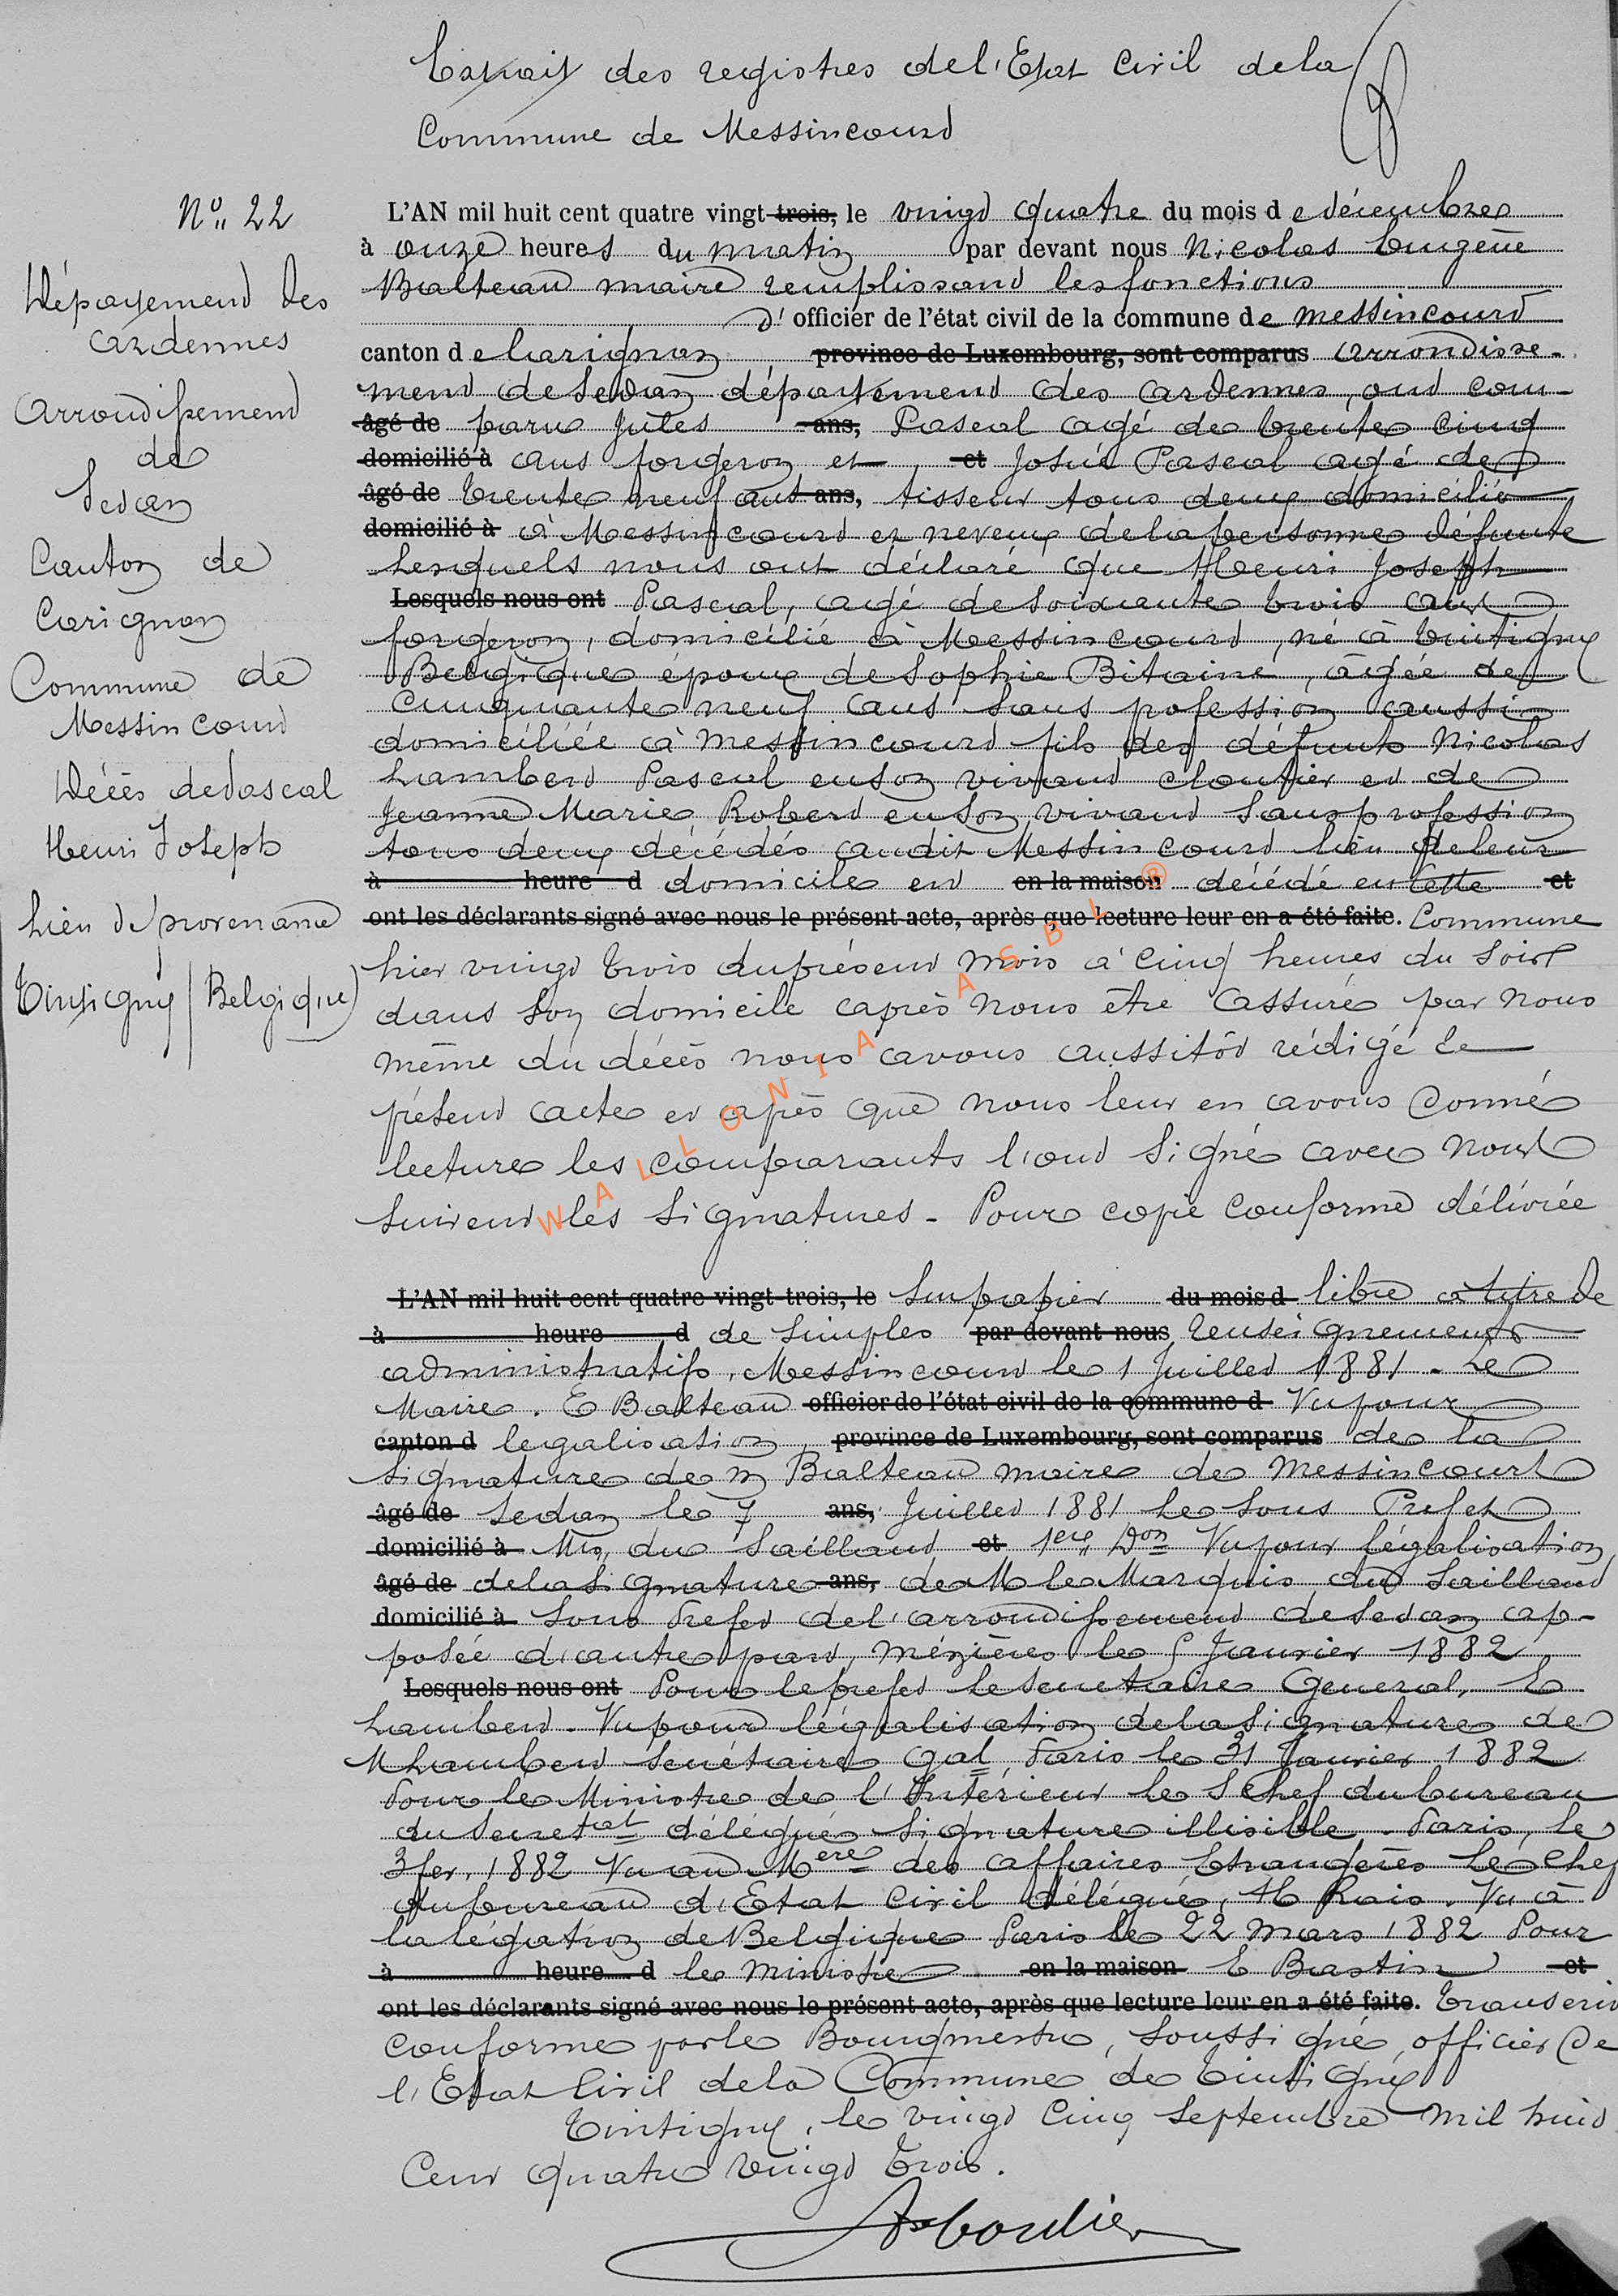 Extrait des registres de l'Etat Civil de la
Commune de Messincourt
N° 22
Département des
Ardennes
Arrondissement
de
Sedan
Canton de
Carignan
Commune de
Messincourt
Décès de Pascal
Henri Joseph
Lieu de provenance
Tintigny (Belgique)
L'AN mil huit cent quatre vingt trois, le vingt quatre du mois de décembre
à onze heures du matin par devant nous Nicolas Eugène
Balteau maire remplissant les fonctions
d'officier de l'état civil de la commune de Messincourt
canton de Carignan province de Luxembourg, sont comparus arrondisse-
ment de Sedan département des Ardennes, ont com-
âgé de paru Jules ans, Pascal agé de trente cinq
domicilié à ans forgeron et et Josué Pascal agé de
âgé de trente neuf ans ans, tisseur tous deux domicilié
domicilié à à Messincourt et neveux de la personne défunte
Lesquels nous ont déclaré que Henri Joseph
Lesquels nous ont Pascal, agé de soixante trois ans
forgeron, domicilié à Messincourt, né à Tintigny
Belgique époux de Sophie Bitaine, agée de
cinquante neuf ans sans profession aussi
domiciliée à Messincourt fils des défunts Nicolas
Lambert Pascal en son vivant cloutier et de
Jeanne Marie Robert en son vivant sans profession
tous deux décédés audit Messincourt lieu de leur
à heure d domicile est en la maison décédé en cette et
ont les déclarants signé avec nous le présent acte, après que lecture leur en a été faite. Commune
hier vingt trois du présent mois à cinq heures du soir
dans son domicile après nous être assuré par nous
même du décès nous avons aussitôt rédigé le
présent acte et après que nous leur en avons donné
lecture les comparants l'ont signé avec nous
suivent les signatures - Pour copie conforme délivrée
WALLONIA ASBL ®
L'AN mil huit cent quatre vingt-trois, le sur papier du mois d libre à titre de
à heure d de simples par devant nous renseignements
administratifs, Messincourt le 1 Juillet 1881 - Le
Maire. E Balteau officier de l'état civil de la commune d Vu pour
canton d legalisation province de Luxembourg, sont comparus de la
signature de M Balteau maire de Messincourt
âgé de Sedan le 7 ans, Juillet 1881 Le Sous Prefet
domicilié à Mis du Sailland et 1ere Don Vu pour légalisation
âgé de de la signature ans, de M le Marquis du Sailland
domicilié à Sous Prefet de l'arrondissement de Sedan ap-
posée d'autre part, Mézières le 5 Janvier 1882
Lesquels nous ont Pour le prefet Le secretaire General, L
Lambert - Vu pour légalisation de la signature de
M Lambert Secrétaire Gal, Paris le 31 Janvier 1882
Pour le Ministre de l'Intérieur le S Chef du bureau
du Secretat délégué signature illisible - Paris, le
3 fev. 1882 Vu au Mere des affaires Etrangères Le Chef
du bureau d'Etat Civil délégué, H Rais. Vu à
la légation de Belgique Paris le 22 Mars 1882 Pour
à heure d le Ministre en la maison E Bastin et
ont les déclarants signé avec nous le présent acte, après que lecture leur en a été faite. Transcrit
conforme par le Bourgmestre, soussigné, officier de
l'Etat Civil de la Commune de Tintigny
Tintigny, le vingt cinq septembre mil huit
cent quatre vingt trois.